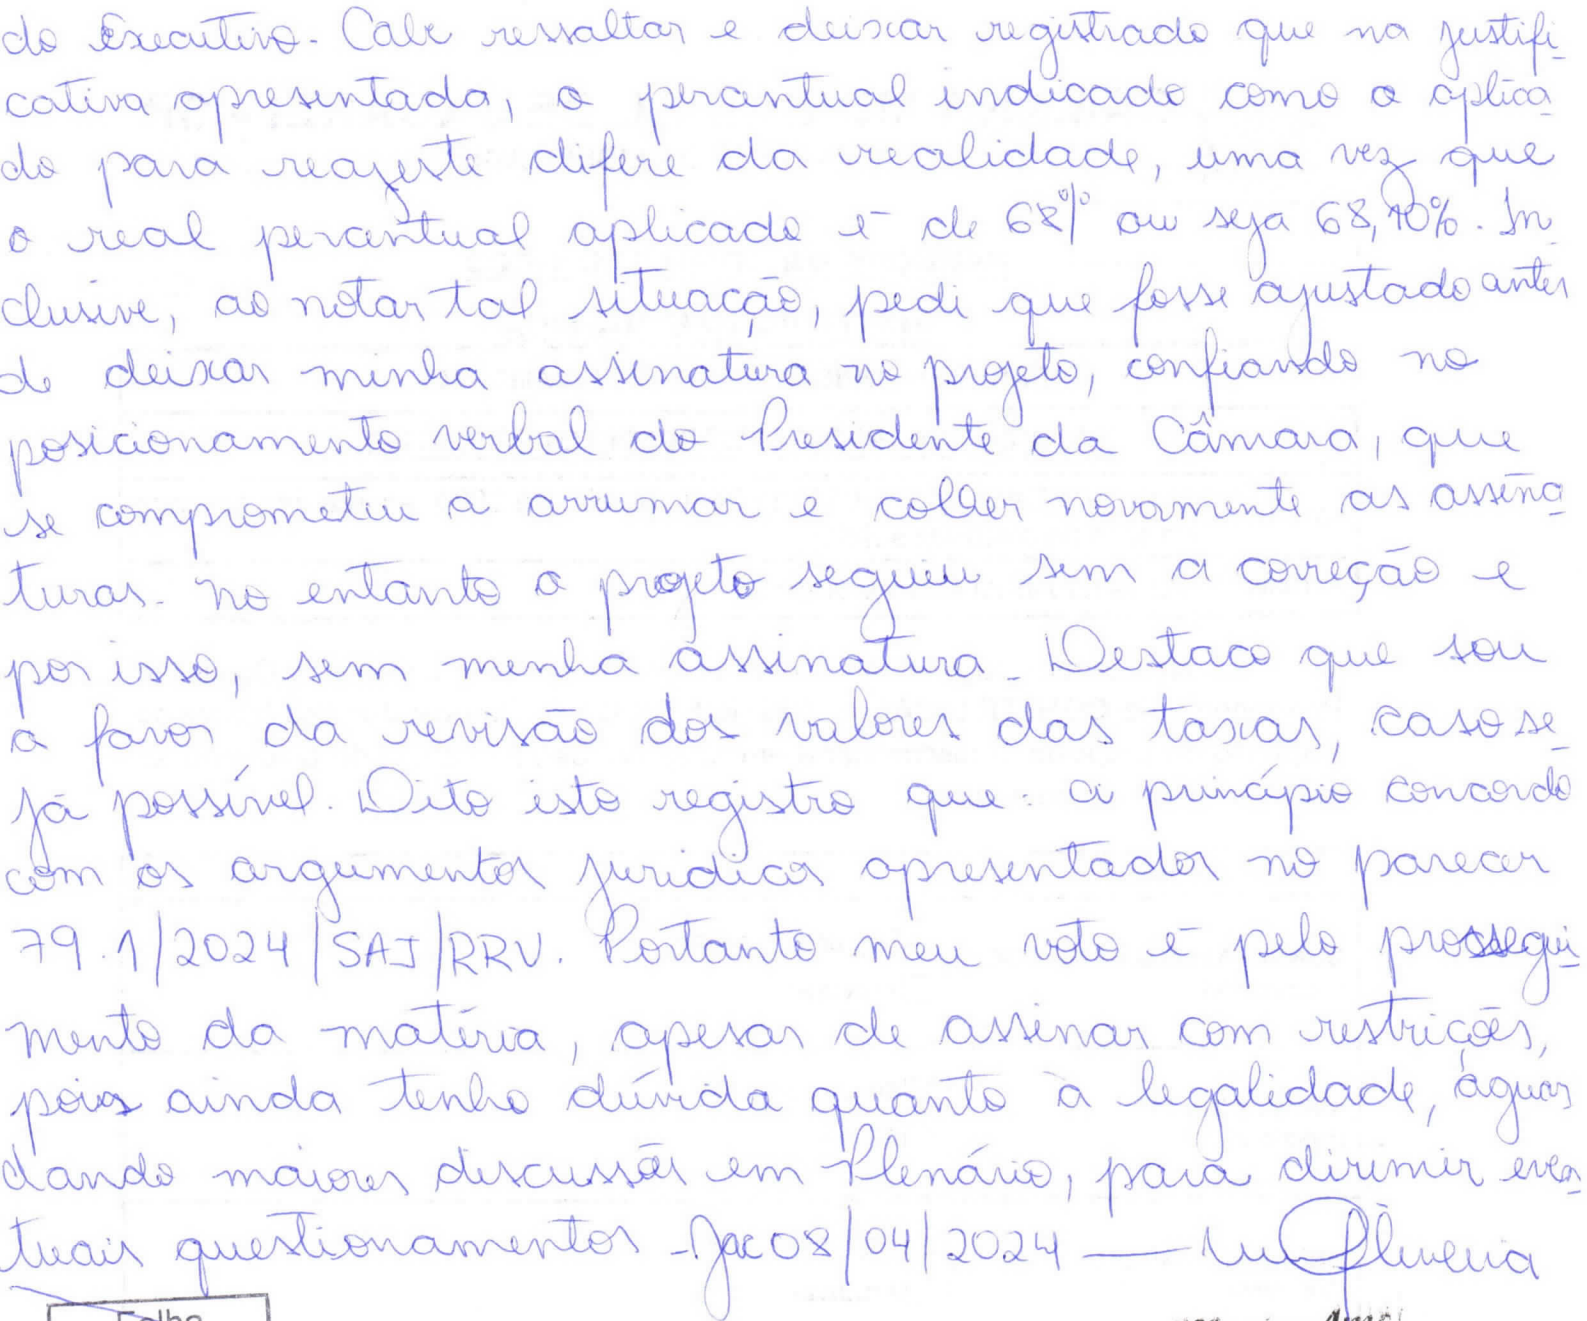 do Executivo. Cabe ressaltar e deixar registrado que na justifi
cativa apresentada, o percentual indicado como o aplica
do para reajuste difere da realidade, uma vez que
o real percentual aplicado é de 68% ou seja 68,10%. In
clusive, ao notar tal situação, pedi que fosse ajustado antes
de deixar minha assinatura no projeto, confiando no
posicionamento verbal do Presidente da Câmara, que
se comprometeu a arrumar e colher novamente as assina
turas. No entanto o projeto seguiu sem a correção e
por isso, sem minha assinatura. Destaco que sou
a favor da revisão dos valores das taxas, caso se
já possível. Dito isto registro que: a princípio concordo
com os argumentos jurídicos apresentados no parecer
79.1/2024/SAJ/RRV. Portanto meu voto é pelo prossegui
mento da matéria, apesar de assinar com restrições,
pois ainda tenho dúvida quanto à legalidade, aguar
dando maiores discussões em Plenário, para dirimir even
tuais questionamentos - Jac 08/04/2024 — Oliveira
Folha